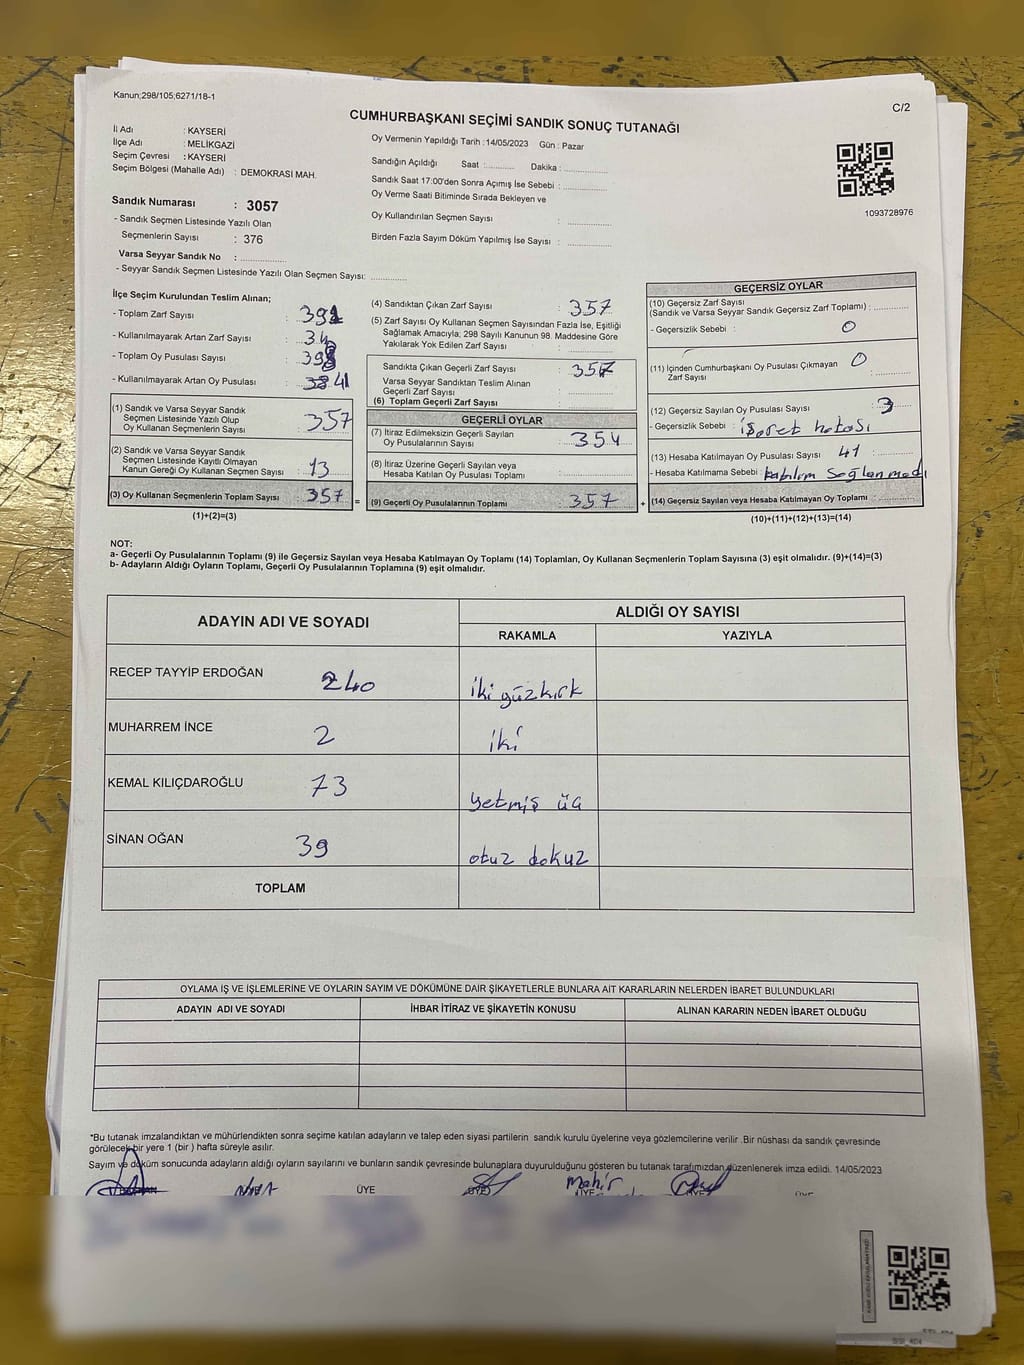 Kanun;298/105;6271/18-1
C/2
CUMHURBAŞKANI SEÇİMİ SANDIK SONUÇ TUTANAĞI
İl Adı : KAYSERİ
İlçe Adı : MELİKGAZİ
Seçim Çevresi : KAYSERİ
Seçim Bölgesi (Mahalle Adı) : DEMOKRASI MAH.
Sandık Numarası : 3057
- Sandık Seçmen Listesinde Yazılı Olan
Seçmenlerin Sayısı : 376
Varsa Seyyar Sandık No :
- Seyyar Sandık Seçmen Listesinde Yazılı Olan Seçmen Sayısı:
Oy Vermenin Yapıldığı Tarih : 14/05/2023 Gün : Pazar
Sandığın Açıldığı Saat : Dakika :
Sandık Saat 17:00'den Sonra Açımış İse Sebebi :
Oy Verme Saati Bitiminde Sırada Bekleyen ve
Oy Kullandırılan Seçmen Sayısı :
Birden Fazla Sayım Döküm Yapılmış İse Sayısı :
1093728976
İlçe Seçim Kurulundan Teslim Alınan;
- Toplam Zarf Sayısı :
- Kullanılmayarak Artan Zarf Sayısı : 34
- Toplam Oy Pusulası Sayısı : 398
- Kullanılmayarak Artan Oy Pusulası : 41
(1) Sandık ve Varsa Seyyar Sandık
Seçmen Listesinde Yazılı Olup
Oy Kullanan Seçmenlerin Sayısı : 357
(2) Sandık ve Varsa Seyyar Sandık
Seçmen Listesinde Kayıtlı Olmayan
Kanun Gereği Oy Kullanan Seçmen Sayısı : 13
(3) Oy Kullanan Seçmenlerin Toplam Sayısı : 357 =
(1)+(2)=(3)
(4) Sandıktan Çıkan Zarf Sayısı : 357
(5) Zarf Sayısı Oy Kullanan Seçmen Sayısından Fazla İse, Eşitliği
Sağlamak Amacıyla; 298 Sayılı Kanunun 98. Maddesine Göre
Yakılarak Yok Edilen Zarf Sayısı :
Sandıkta Çıkan Geçerli Zarf Sayısı : 357
Varsa Seyyar Sandıktan Teslim Alınan
Geçerli Zarf Sayısı :
(6) Toplam Geçerli Zarf Sayısı :
GEÇERLİ OYLAR
(7) İtiraz Edilmeksizin Geçerli Sayılan
Oy Pusulalarının Sayısı : 354
(8) İtiraz Üzerine Geçerli Sayılan veya
Hesaba Katılan Oy Pusulası Toplamı :
(9) Geçerli Oy Pusulalarının Toplamı : 357 +
GEÇERSİZ OYLAR
(10) Geçersiz Zarf Sayısı
(Sandık ve Varsa Seyyar Sandık Geçersiz Zarf Toplamı) :
- Geçersizlik Sebebi : 0
(11) İçinden Cumhurbaşkanı Oy Pusulası Çıkmayan 0
Zarf Sayısı :
(12) Geçersiz Sayılan Oy Pusulası Sayısı : 3
- Geçersizlik Sebebi : işaret hatası
(13) Hesaba Katılmayan Oy Pusulası Sayısı : 41
- Hesaba Katılmama Sebebi : katılım sağlanmadı
(14) Geçersiz Sayılan veya Hesaba Katılmayan Oy Toplamı :
(10)+(11)+(12)+(13)=(14)
NOT:
a- Geçerli Oy Pusulalarının Toplamı (9) ile Geçersiz Sayılan veya Hesaba Katılmayan Oy Toplamı (14) Toplamları, Oy Kullanan Seçmenlerin Toplam Sayısına (3) eşit olmalıdır. (9)+(14)=(3)
b- Adayların Aldığı Oyların Toplamı, Geçerli Oy Pusulalarının Toplamına (9) eşit olmalıdır.
ADAYIN ADI VE SOYADI
ALDIĞI OY SAYISI
RAKAMLA YAZIYLA
RECEP TAYYİP ERDOĞAN 240 iki yüzkırk
MUHARREM İNCE 2 iki
KEMAL KILIÇDAROĞLU 73 yetmiş üç
SİNAN OĞAN 39 otuz dokuz
TOPLAM
OYLAMA İŞ VE İŞLEMLERİNE VE OYLARIN SAYIM VE DÖKÜMÜNE DAİR ŞİKAYETLERLE BUNLARA AİT KARARLARIN NELERDEN İBARET BULUNDUKLARI
ADAYIN ADI VE SOYADI İHBAR İTİRAZ VE ŞİKAYETİN KONUSU ALINAN KARARIN NEDEN İBARET OLDUĞU
*Bu tutanak imzalandıktan ve mühürlendikten sonra seçime katılan adayların ve talep eden siyasi partilerin sandık kurulu üyelerine veya gözlemcilerine verilir .Bir nüshası da sandık çevresinde
görülecek bir yere 1 (bir ) hafta süreyle asılır.
Sayım ve döküm sonucunda adayların aldığı oyların sayılarını ve bunların sandık çevresinde bulunaplara duyurulduğunu gösteren bu tutanak tarafımızdan düzenlenerek imza edildi. 14/05/2023
ÜYE ÜYE Mahir ÜYE